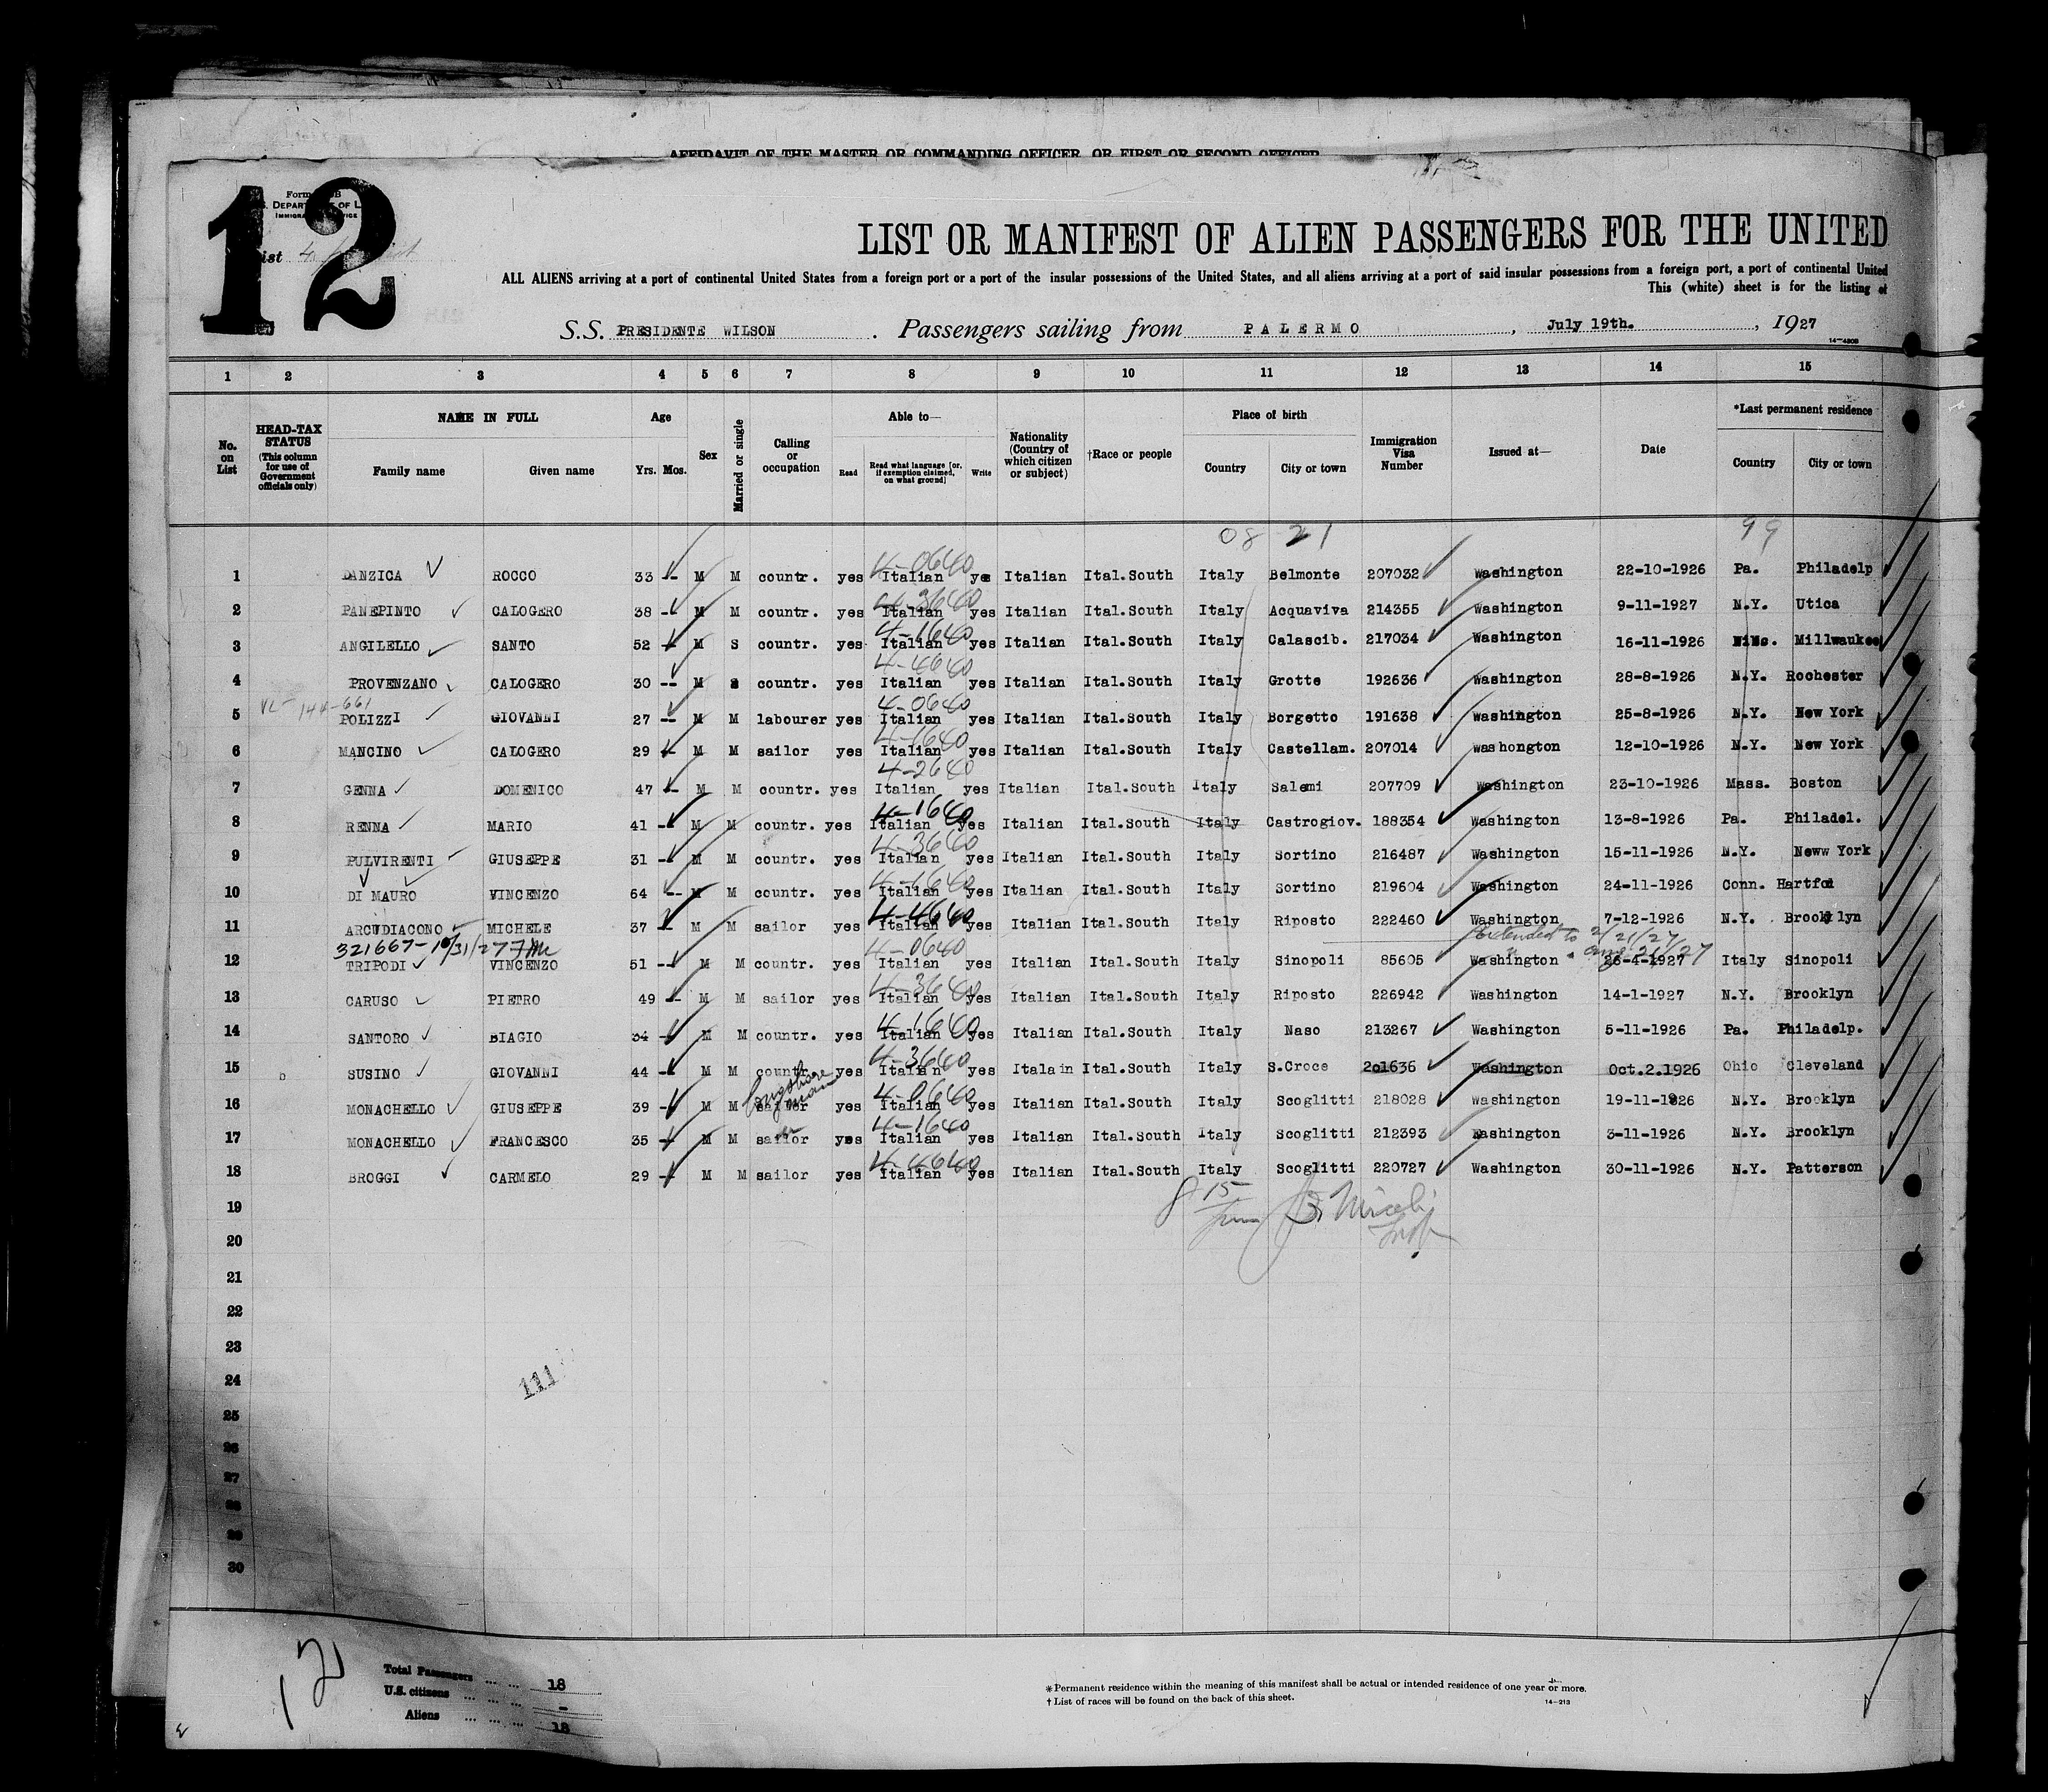 AFFIDAVIT OF THE MASTER OR COMMANDING OFFICER, OR FIRST OR SECOND OFFICER
12
Form
DEPARTMENT OF L
IMMIGRATION SERVICE
ist 4
LIST OR MANIFEST OF ALIEN PASSENGERS FOR THE UNITED
ALL ALIENS arriving at a port of continental United States from a foreign port or a port of the insular possessions of the United States, and all aliens arriving at a port of said insular possessions from a foreign port, a port of continental United
This (white) sheet is for the listing of
S.S. PRESIDENTE WILSON . Passengers sailing from PALERMO , July 19th. , 1927
1 2 3 4 5 6 7 8 9 10 11 12 13 14 15
No. on List HEAD-TAX STATUS (This column for use of Government officials only) NAME IN FULL Family name Given name Age Yrs. Mos. Sex Married or single Calling or occupation Able to— Read Read what language [or, if exemption claimed, on what ground] Write Nationality (Country of which citizen or subject) †Race or people Place of birth Country City or town Immigration Visa Number Issued at— Date *Last permanent residence Country City or town
08 21 99
4-0640
1 DANZICA ROCCO 33 -- M M countr. yes Italian yes Italian Ital.South Italy Belmonte 207032 Washington 22-10-1926 Pa. Philadelp
4-3640
2 PANEPINTO CALOGERO 38 -- M M countr. yes Italian yes Italian Ital.South Italy Acquaviva 214355 Washington 9-11-1927 N.Y. Utica
4-1640
3 ANGILELLO SANTO 52 -- M S countr. yes Italian yes Italian Ital.South Italy Calascib. 217034 Washington 16-11-1926 Millwaukee
4-4640
4 PROVENZANO CALOGERO 30 -- M S countr. yes Italian yes Italian Ital.South Italy Grotte 192636 Washington 28-8-1926 N.Y. Rochester
144-661 4-0640
5 POLIZZI GIOVANNI 27 -- M M labourer yes Italian yes Italian Ital.South Italy Borgetto 191638 Washington 25-8-1926 N.Y. New York
4-1640
6 MANCINO CALOGERO 29 -- M M sailor yes Italian yes Italian Ital.South Italy Castellam. 207014 washongton 12-10-1926 N.Y. New York
4-2640
7 GENNA DOMENICO 47 -- M M countr. yes Italian yes Italian Ital.South Italy Salemi 207709 Washington 23-10-1926 Mass. Boston
4-1640
8 RENNA MARIO 41 -- M M countr. yes Italian yes Italian Ital.South Italy Castrogiov. 188354 Washington 13-8-1926 Pa. Philadel.
4-3640
9 PULVIRENTI GIUSEPPE 31 -- M M countr. yes Italian yes Italian Ital.South Italy Sortino 216487 Washington 15-11-1926 N.Y. Neww York
4-1640
10 DI MAURO VINCENZO 64 -- M M countr. yes Italian yes Italian Ital.South Italy Sortino 219604 Washington 24-11-1926 Conn. Hartfod
4-4640
11 ARCUDIACONO MICHELE 37 -- M M sailor yes Italian yes Italian Ital.South Italy Riposto 222460 Washington 7-12-1926 N.Y. Brooklyn
321667-10/31/27 4-0640 Extended to 2/21/27
12 TRIPODI VINCENZO 51 -- M M countr. yes Italian yes Italian Ital.South Italy Sinopoli 85605 Washington 26-4-1927 Italy Sinopoli
4-3640
13 CARUSO PIETRO 49 -- M M sailor yes Italian yes Italian Ital.South Italy Riposto 226942 Washington 14-1-1927 N.Y. Brooklyn
4-1640
14 SANTORO BIAGIO 34 -- M M countr. yes Italian yes Italian Ital.South Italy Naso 213267 Washington 5-11-1926 Pa. Philadelp.
4-3640
15 SUSINO GIOVANNI 44 -- M M countr. yes Italian yes Italain Ital.South Italy S.Croce 201636 Washington Oct.2.1926 Ohio Cleveland
longshoreman 4-0640
16 MONACHELLO GIUSEPPE 39 -- M M sailor yes Italian yes Italian Ital.South Italy Scoglitti 218028 Washington 19-11-1926 N.Y. Brooklyn
4-1640
17 MONACHELLO FRANCESCO 35 -- M M sailor yes Italian yes Italian Ital.South Italy Scoglitti 212393 Washington 3-11-1926 N.Y. Brooklyn
4-4640
18 BROGGI CARMELO 29 -- M M sailor yes Italian yes Italian Ital.South Italy Scoglitti 220727 Washington 30-11-1926 N.Y. Patterson
19
20
21
22
23
24
111
25
26
27
28
29
30
Total Passengers ... ... 18
U.S. citizens ... ... ... -
Aliens ... ... ... 18
*Permanent residence within the meaning of this manifest shall be actual or intended residence of one year or more.
† List of races will be found on the back of this sheet.
14-213